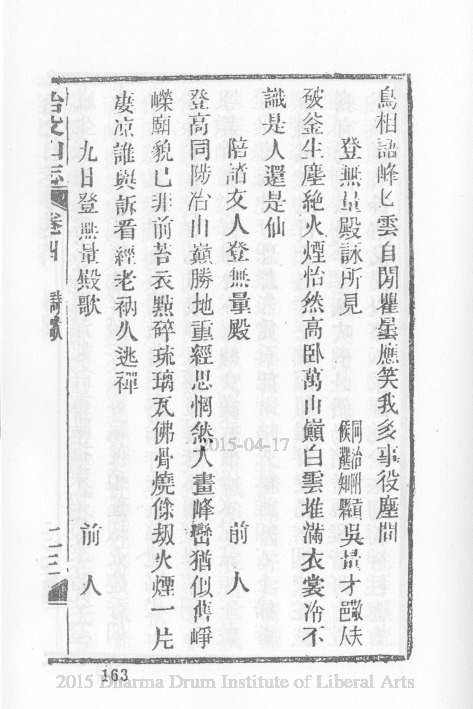 鳥相語峰匕雲自閒瞿曇應笑我多事役塵間
登無量殿詠所見 同治附貢候選知縣吳 才邑人
破釜生塵絕火煙怡然高臥萬山巔白雲堆滿衣裳冷不
識是人還是仙
陪諸友人登無量殿 前人
登高同陟冶山巔勝地重經思惘然入畫峰巒猶似舊崢
嶸廟貌已非前苔衣點碎琉璃瓦佛骨燒餘刧火煙一片
凄凉誰與訴看經老衲久逃禪
九日登無量殿歌 前人
冶父山志 卷四 詩歌 二三
163
2015-04-17
2015 Dharma Drum Institute of Liberal Arts